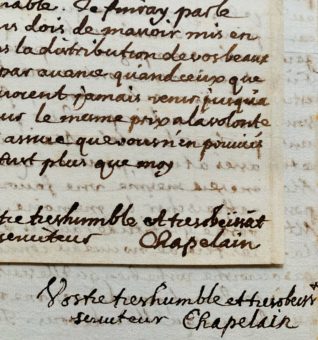 nable. Je finiray par le
s dois de m'avoir mis en
s la distribution de vos beaux
par auance quand ceux que
uoient jamais venir jusqu'a
ur le mesme prix a la volonte
assure que vous n'en pouuiés
plus que moy
tre treshumble et tresobeissãt
seruiteur Chapelain
Vostre treshumble et tresobeisst
seruiteur Chapelain